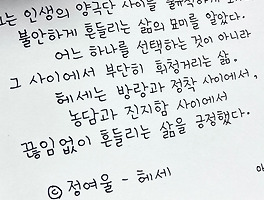 는 인생의 양극단 사이를
불안하게 흔들리는 삶의 묘미를 알았다.
어느 하나를 선택하는 것이 아니라
그 사이에서 부단히 휘청거리는 삶.
헤세는 방랑과 정착 사이에서,
농담과 진지함 사이에서
끊임없이 흔들리는 삶을 긍정했다.
ⓒ 정여울 - 헤세